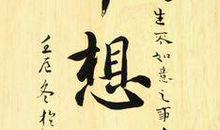 生不如意之事
想
壬辰冬於